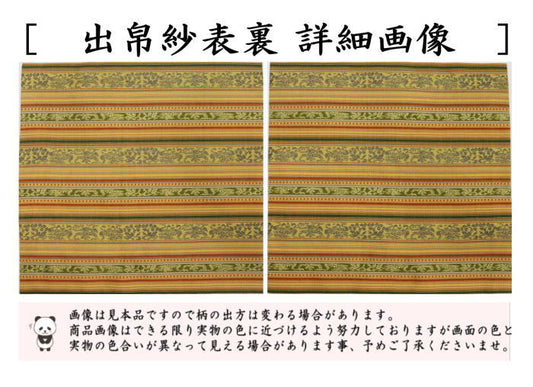 [ 出帛紗表裏 詳細画像 ]
画像は見本品ですので柄の出方は変わる場合があります。
商品画像はできる限り実物の色に近づけるよう努力しておりますが画面の色と
実物の色合いが異なって見える場合があります事、予めご了承くださいませ。